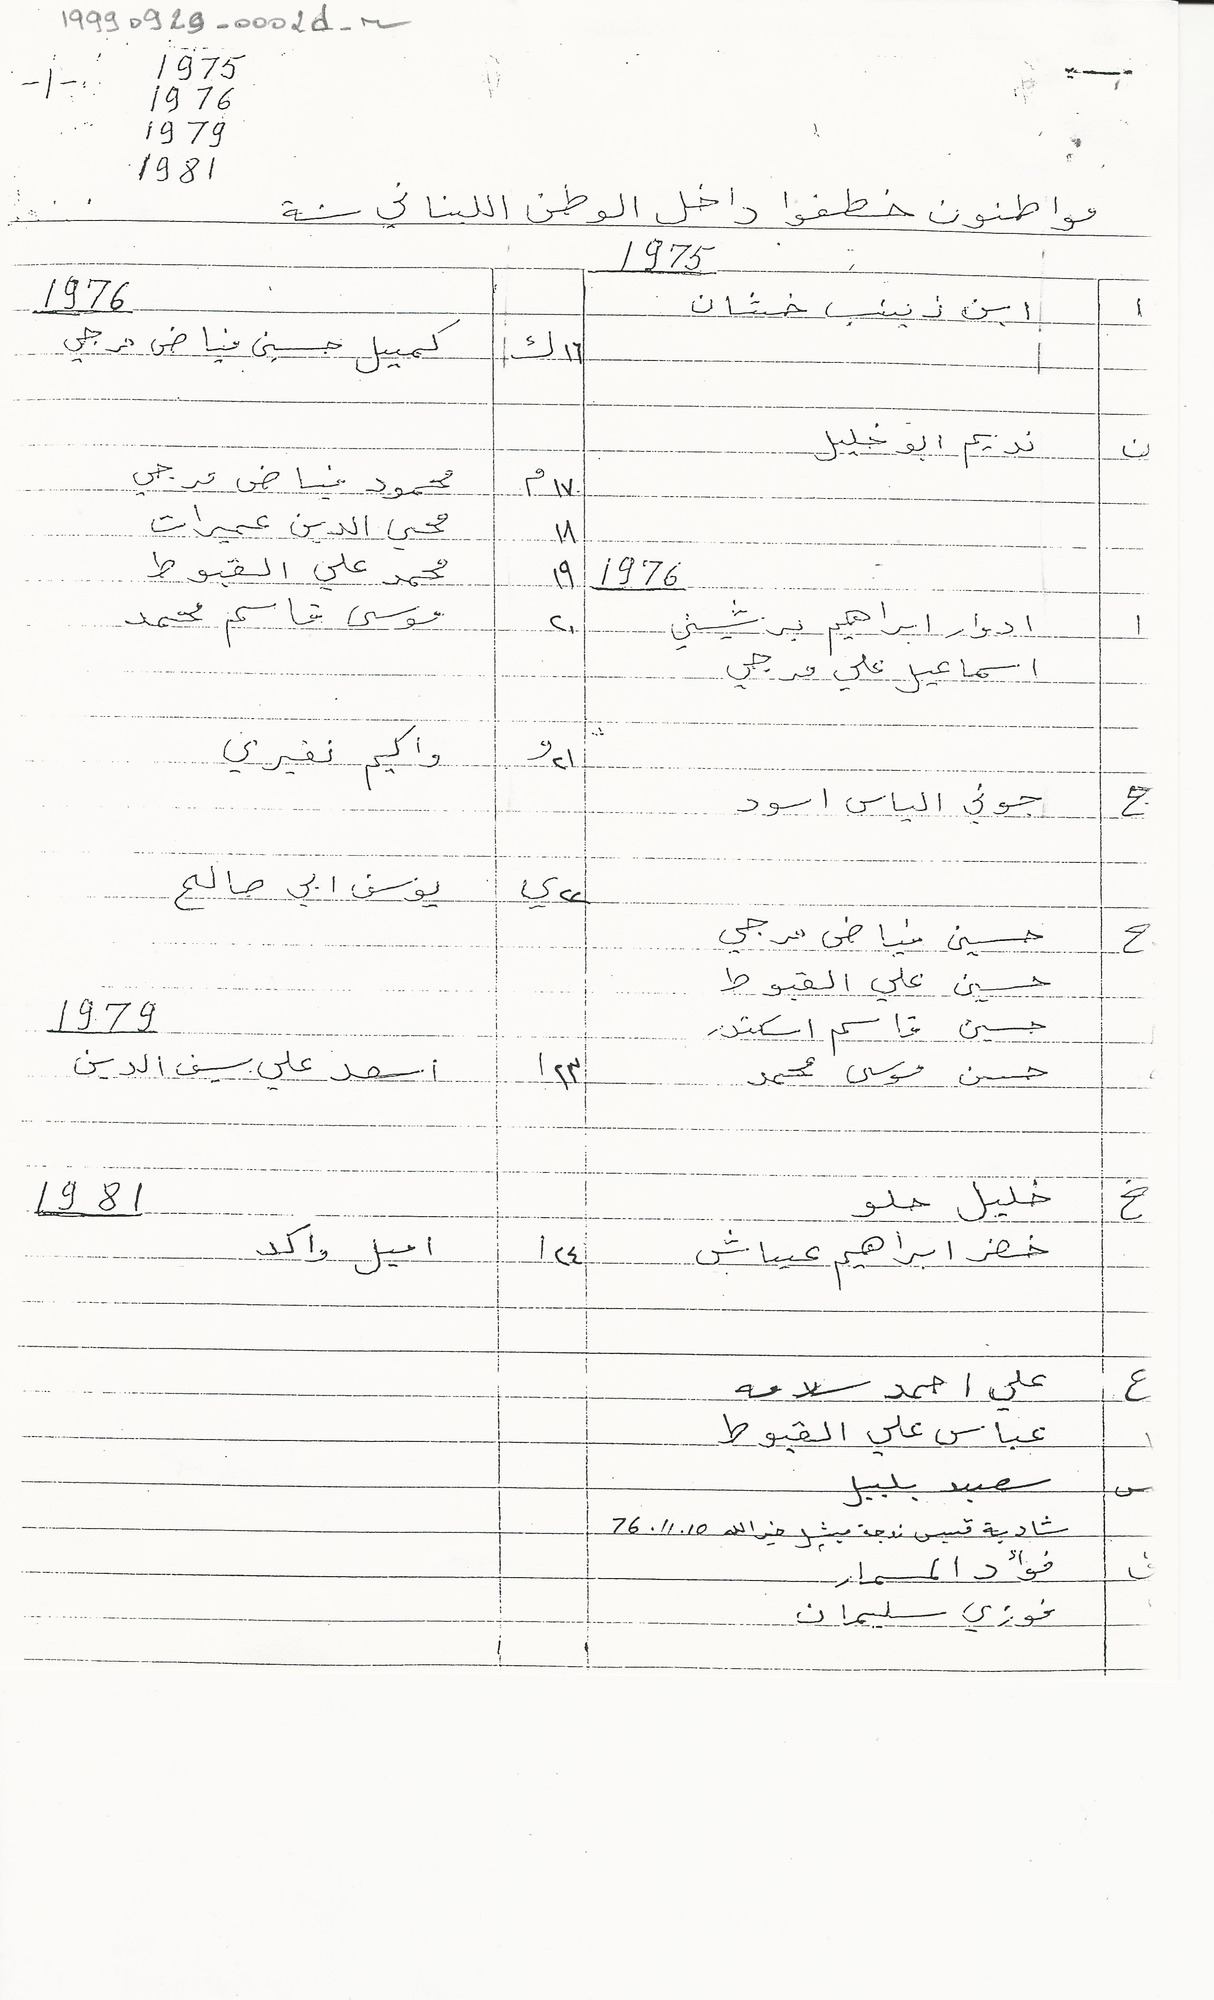 19990929-0002d-r
-1-
1975
1976
1979
1981
مواطنون خطفوا داخل الوطن اللبناني سنة
1975
ا ابن زينب خشان
ن نديم ابو خليل
1976
ا ادوار ابراهيم برشيني
اسماعيل علي مرجي
ج جوني الياس اسود
ح حسين فياض مرجي
حسين علي القبوط
حسين قاسم اسكندر
حسن موسى محمد
خ خليل حلو
خضر ابراهيم عياش
ع علي احمد سلامه
عباس علي القبوط
س سعيد بلبيل
شادية قبيسي زوجة ميشيل خيرالله 76.11.15
ف فؤاد المسمار
فوزي سليمان
1976
١٦ ك كميل حسين فياض مرجي
١٧ م محمود فياض مرجي
١٨ محي الدين عميرات
١٩ محمد علي القبوط
٢٠ موسى قاسم محمد
٢١ و واكيم نفيري
٢٢ ي يوسف ابي صالح
1979
٢٣ ا اسعد علي سيف الدين
1981
٢٤ ا اميل واكد